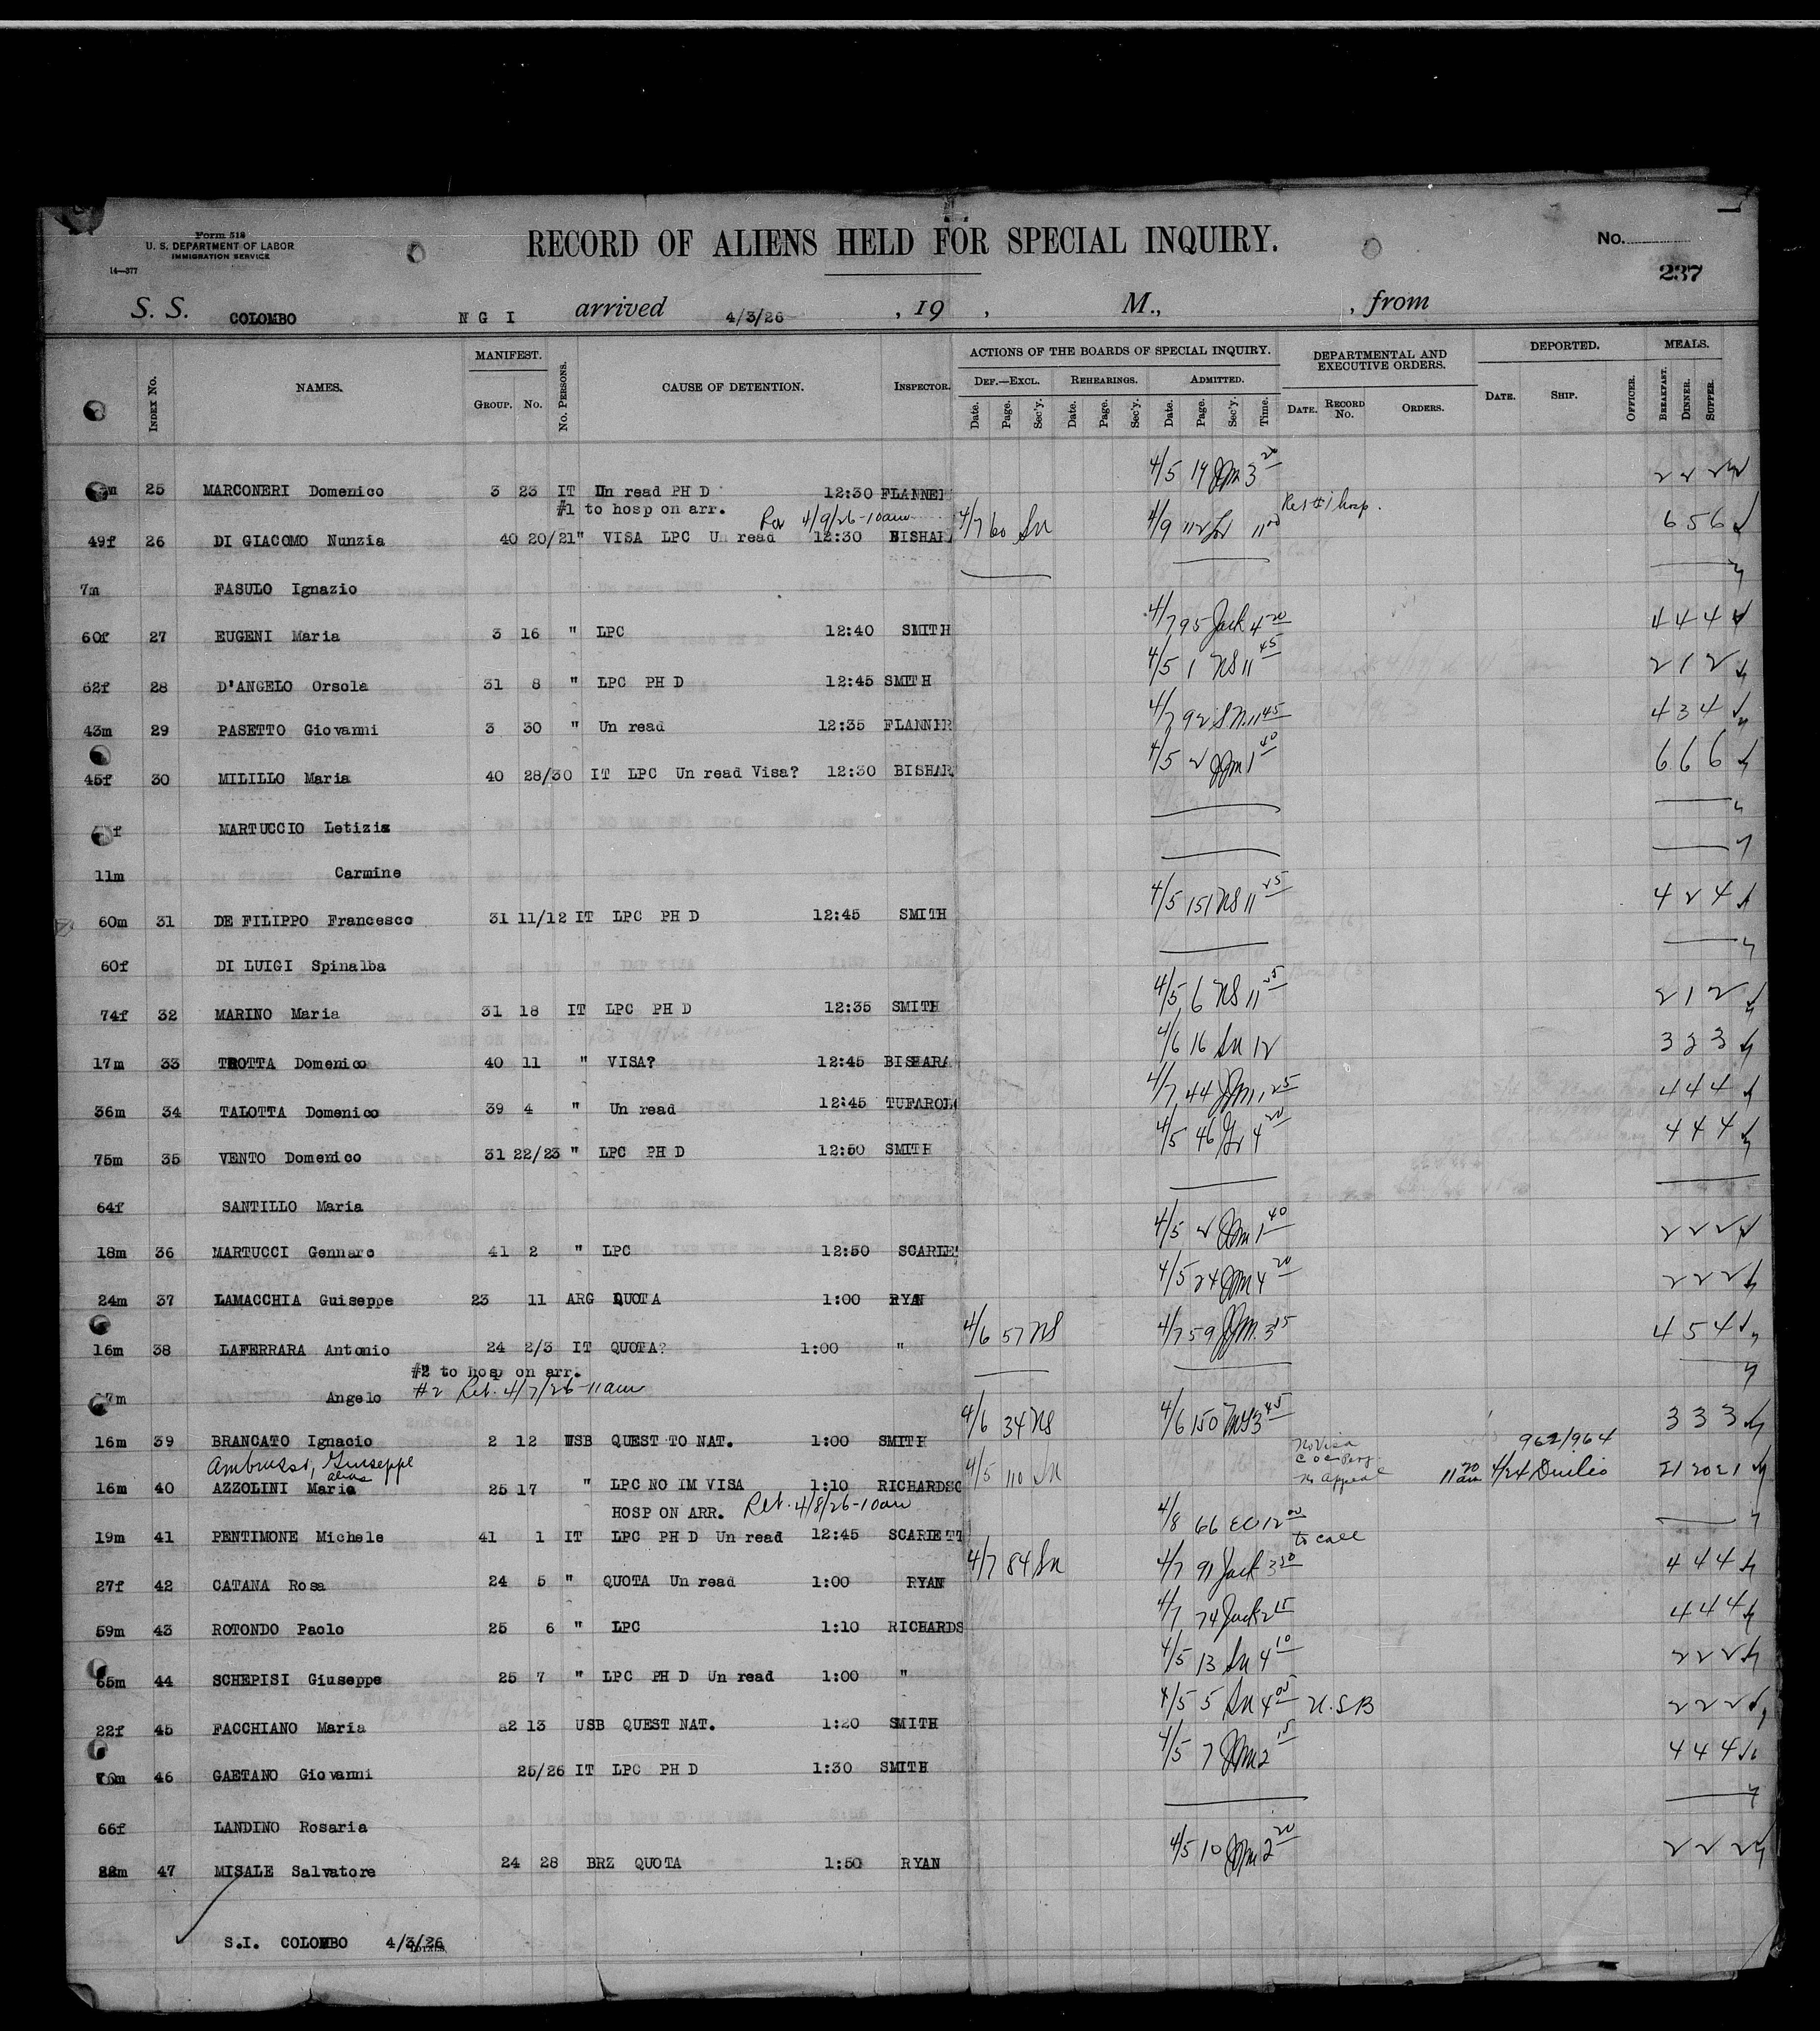 Form 518
U. S. DEPARTMENT OF LABOR
IMMIGRATION SERVICE
14—377
RECORD OF ALIENS HELD FOR SPECIAL INQUIRY.
No.
237
S. S. COLOMBO N G I arrived 4/3/26 , 19 , M., , from
INDEX NO. NAMES. MANIFEST. GROUP. NO. NO. PERSONS. CAUSE OF DETENTION. INSPECTOR. ACTIONS OF THE BOARDS OF SPECIAL INQUIRY. DEF.—EXCL. Date. Page. Sec'y. REHEARINGS. Date. Page. Sec'y. ADMITTED. Date. Page. Sec'y. Time. DEPARTMENTAL AND EXECUTIVE ORDERS. DATE. RECORD NO. ORDERS. DEPORTED. DATE. SHIP. OFFICER. MEALS. BREAKFAST. DINNER. SUPPER.
25 MARCONERI Domenico 3 23 IT Un read PH D 12:30 FLANNER 4/5 19 3 20 2 2 2
#1 to hosp on arr. 4/9/26-10am Ret #1 hosp.
49f 26 DI GIACOMO Nunzia 40 20/21 " VISA LPC Un read 12:30 BISHAR 4/7 60 Sn 4/9 112 11 00 6 5 6
7m FASULO Ignazio
60f 27 EUGENI Maria 3 16 " LPC 12:40 SMITH 4/7 95 Jack 4 20 4 4 4
62f 28 D'ANGELO Orsola 31 8 " LPC PH D 12:45 SMITH 4/5 1 NS 11 45 2 1 2
43m 29 PASETTO Giovanni 3 30 " Un read 12:35 FLANNER 4/7 92 11 45 4 3 4
45f 30 MILILLO Maria 40 28/30 IT LPC Un read Visa? 12:30 BISHAR 4/5 2 1 40 6 6 6
f MARTUCCIO Letizia
11m Carmine
60m 31 DE FILIPPO Francesco 31 11/12 IT LPC PH D 12:45 SMITH 4/5 151 NS 11 25 4 2 4
60f DI LUIGI Spinalba
74f 32 MARINO Maria 31 18 IT LPC PH D 12:35 SMITH 4/5 6 NS 11 25 2 1 2
17m 33 TROTTA Domenico 40 11 " VISA? 12:45 BISHARA 4/6 16 Sn 12 3 3 3
36m 34 TALOTTA Domenico 39 4 " Un read 12:45 TUFAROL 4/7 44 1 25 4 4 4
75m 35 VENTO Domenico 31 22/23 " LPC PH D 12:50 SMITH 4/5 46 4 20 4 4 4
64f SANTILLO Maria
18m 36 MARTUCCI Gennaro 41 2 " LPC 12:50 SCARLE 4/5 2 1 40 2 2 2
24m 37 LAMACCHIA Guiseppe 23 11 ARG QUOTA 1:00 RYAN 4/5 24 4 20 2 2 2
16m 38 LAFERRARA Antonio 24 2/3 IT QUOTA? 1:00 " 4/6 57 NS 4/7 59 3 15 4 5 4
#2 to hosp on arr.
m Angelo #2 Ret. 4/7/26-11am
16m 39 BRANCATO Ignacio 2 12 USB QUEST TO NAT. 1:00 SMITH 4/6 34 NS 4/6 150 3 45 3 3 3
Ambrussi, Guiseppe alias No Visa 962/964
16m 40 AZZOLINI Mario 25 17 " LPC NO IM VISA 1:10 RICHARDSO 4/5 110 Sn No Appeal 11 20 am 4/24 Duilio 21 20 21
HOSP ON ARR. Ret. 4/8/26-10am
19m 41 PENTIMONE Michele 41 1 IT LPC PH D Un read 12:45 SCARLETT 4/8 66 12 00 to call
27f 42 CATANA Rosa 24 5 " QUOTA Un read 1:00 RYAN 4/7 84 Sn 4/7 91 Jack 3 30 4 4 4
59m 43 ROTONDO Paolo 25 6 " LPC 1:10 RICHARDS 4/7 74 Jack 2 15 4 4 4
65m 44 SCHEPISI Giuseppe 25 7 " LPC PH D Un read 1:00 " 4/5 13 Sn 4 10 2 2 2
22f 45 FACCHIANO Maria a2 13 USB QUEST NAT. 1:20 SMITH 4/5 5 Sn 4 00 U.S.B 2 2 2
46 GAETANO Giovanni 25/26 IT LPC PH D 1:30 SMITH 4/5 7 2 15 4 4 4
66f LANDINO Rosaria
47 MISALE Salvatore 24 28 BRZ QUOTA 1:50 RYAN 4/5 10 2 20 2 2 2
S.I. COLOMBO 4/3/26